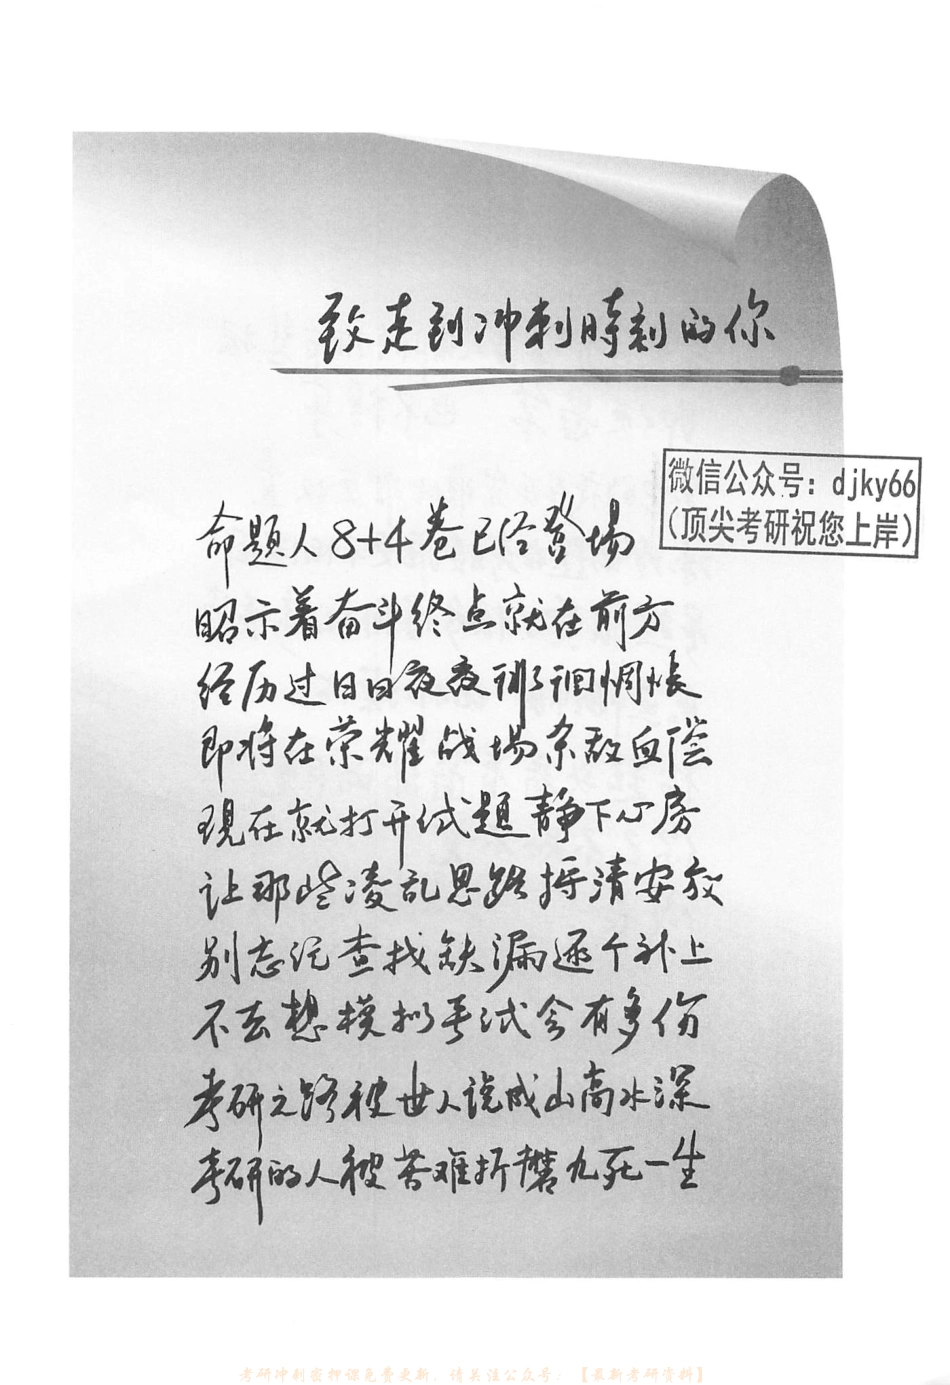 致走到冲刺時刻的你
微信公众号：djky66
（顶尖考研祝您上岸）
命題人8+4卷已经登场
昭示着奋斗终点就在前方
经历过日日夜夜彷徊惆怅
即将在荣耀战场杀敌血偿
現在就打开试题静下心房
让那些凌乱思路捋清安放
别忘记查找缺漏逐个补上
不去想模拟考试会有多伤
考研之路被世人说成山高水深
考研的人被苦难折磨九死一生
考研冲刺密押课免费更新，请关注公众号：【最新考研资料】